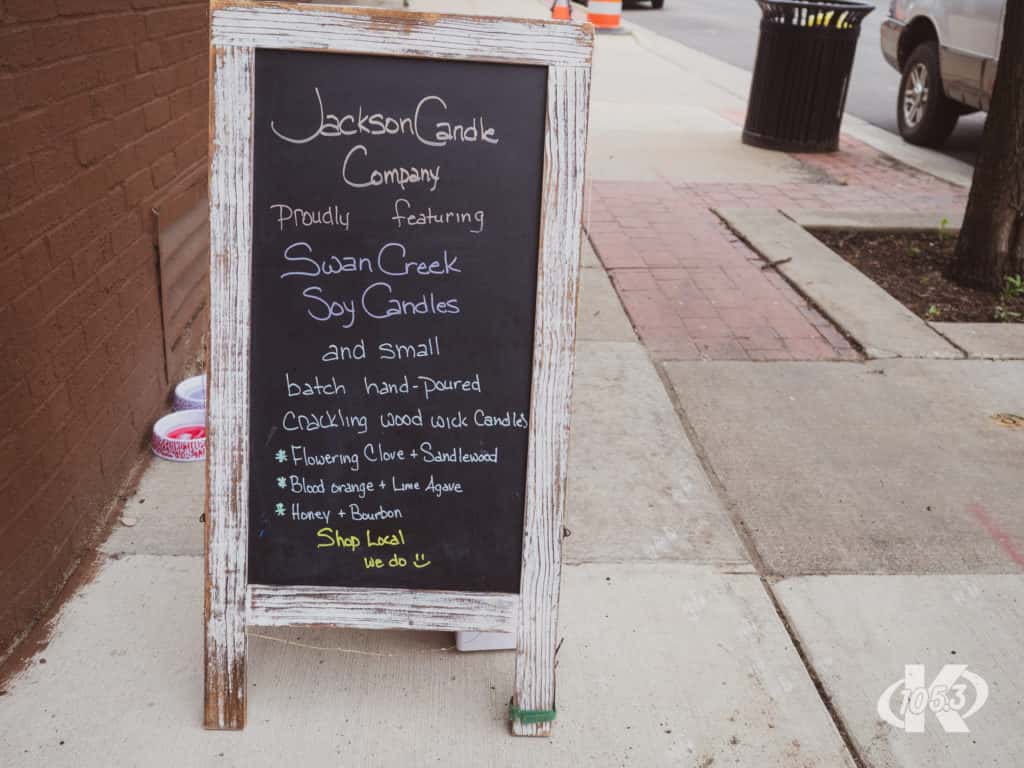 Jackson Candle
Company
Proudly featuring
Swan Creek
Soy Candles
and small
batch hand-poured
Crackling wood wick Candles
* Flowering Clove + Sandlewood
* Blood orange + Lime Agave
* Honey + Bourbon
Shop Local
we do
K
105.3